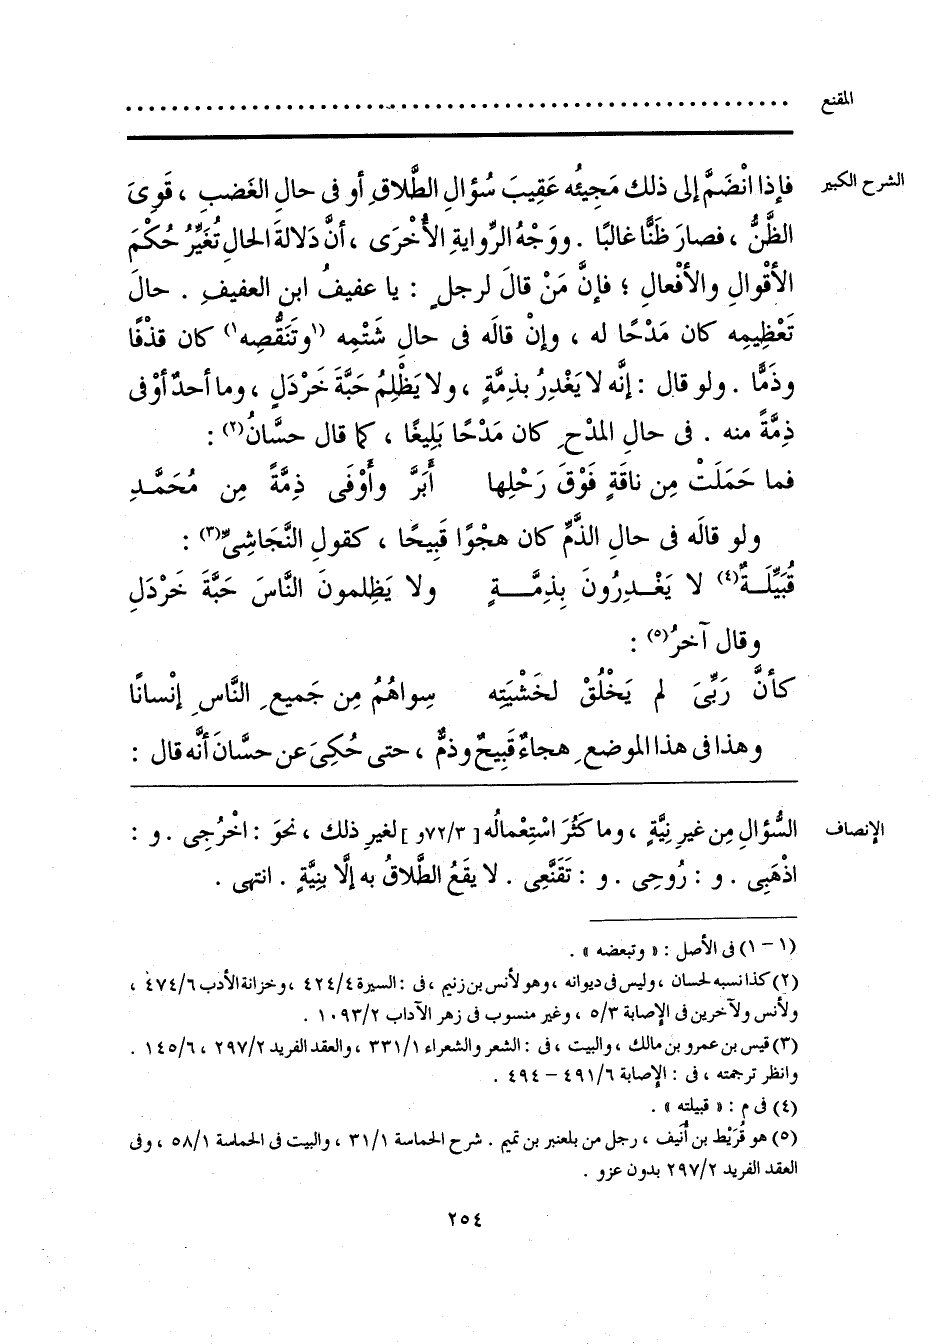 المقنع ................................................................
الشرح الكبير فإذا انْضَمَّ إلى ذلك مَجِيئُه عَقِيبَ سُؤالِ الطَّلاقِ أو فى حالِ الغَضبِ ، قَوِىَ
الظَّنُّ ، فصارَ ظَنًّا غالبًا . ووَجْهُ الرِّوايةِ الأُخْرَى ، أنَّ دَلالةَ الحالِ تُغَيِّرُ حُكْمَ
الأقْوالِ والأفْعالِ ؛ فإنَّ مَنْ قالَ لرجلٍ : يا عفيفُ ابن العفيفِ . حالَ
تَعْظِيمِه كان مَدْحًا له ، وإنْ قالَه فى حالِ شَتْمِه (١وتَنَقُّصِه١) كان قذْفًا
وذَمًّا . ولو قال : إنَّه لا يَغْدِرُ بذِمَّةٍ ، ولا يَظْلِمُ حَبَّةَ خَرْدَلٍ ، وما أحدٌ أوْفى
ذِمَّةً منه . فى حالِ المدْحِ كان مَدْحًا بَلِيغًا ، كما قال حسَّانُ(٢) :
فما حَمَلَتْ مِن ناقَةٍ فَوْقَ رَحْلِها أَبَرَّ وأَوْفَى ذِمَّةً مِن مُحَمَّـدِ
ولو قالَه فى حالِ الذَّمِّ كان هجْوًا قَبِيحًا ، كقولِ النَّجَاشِىِّ(٣) :
قُبَيِّلَـةٌ(٤) لا يَغْـدِرُونَ بِذِمَّـــةٍ ولا يَظْلِمونَ النَّاسَ حَبَّةَ خَرْدَلِ
وقال آخرُ(٥) :
كأنَّ رَبِّىَ لم يَخْلُقْ لخَشْيَتِه سِواهُمُ مِن جَميعِ النَّاسِ إنْسانًا
وهذا فى هذا الموضعِ هجاءٌ قَبِيحٌ وذمٌّ ، حتى حُكِىَ عن حسَّانَ أنَّه قال :
الإنصاف السُّؤالِ مِن غيرِ نِيَّةٍ ، وما كَثُرَ اسْتِعْمالُه [ ٧٢/٣و ] لغيرِ ذلك ، نحوَ : اخْرُجِى . و :
اذْهَبِى . و : رُوحِى . و : تَقَنَّعِى . لا يقَعُ الطَّلاقُ به إلَّا بنِيَّةٍ . انتهى .
(١ - ١) فى الأصل : « وتبعضه » .
(٢) كذا نسبه لحسان ، وليس فى ديوانه ، وهو لأنس بن زنيم ، فى : السيرة ٤٢٤/٤ ، وخزانة الأدب ٤٧٤/٦ ،
ولأنس ولآخرين فى الإصابة ٥/٣ ، وغير منسوب فى زهر الآداب ١٠٩٣/٢ .
(٣) قيس بن عمرو بن مالك ، والبيت ، فى : الشعر والشعراء ٣٣١/١ ، والعقد الفريد ٢٩٧/٢ ، ١٤٥/٦ .
وانظر ترجمته ، فى : الإصابة ٤٩١/٦ – ٤٩٤ .
(٤) فى م : « قبيلته » .
(٥) هو قُرَيْط بن أُنَيف ، رجل من بلعنبر بن تميم . شرح الحماسة ٣١/١ ، والبيت فى الحماسة ٥٨/١ ، وفى
العقد الفريد ٢٩٧/٢ بدون عزو .
٢٥٤